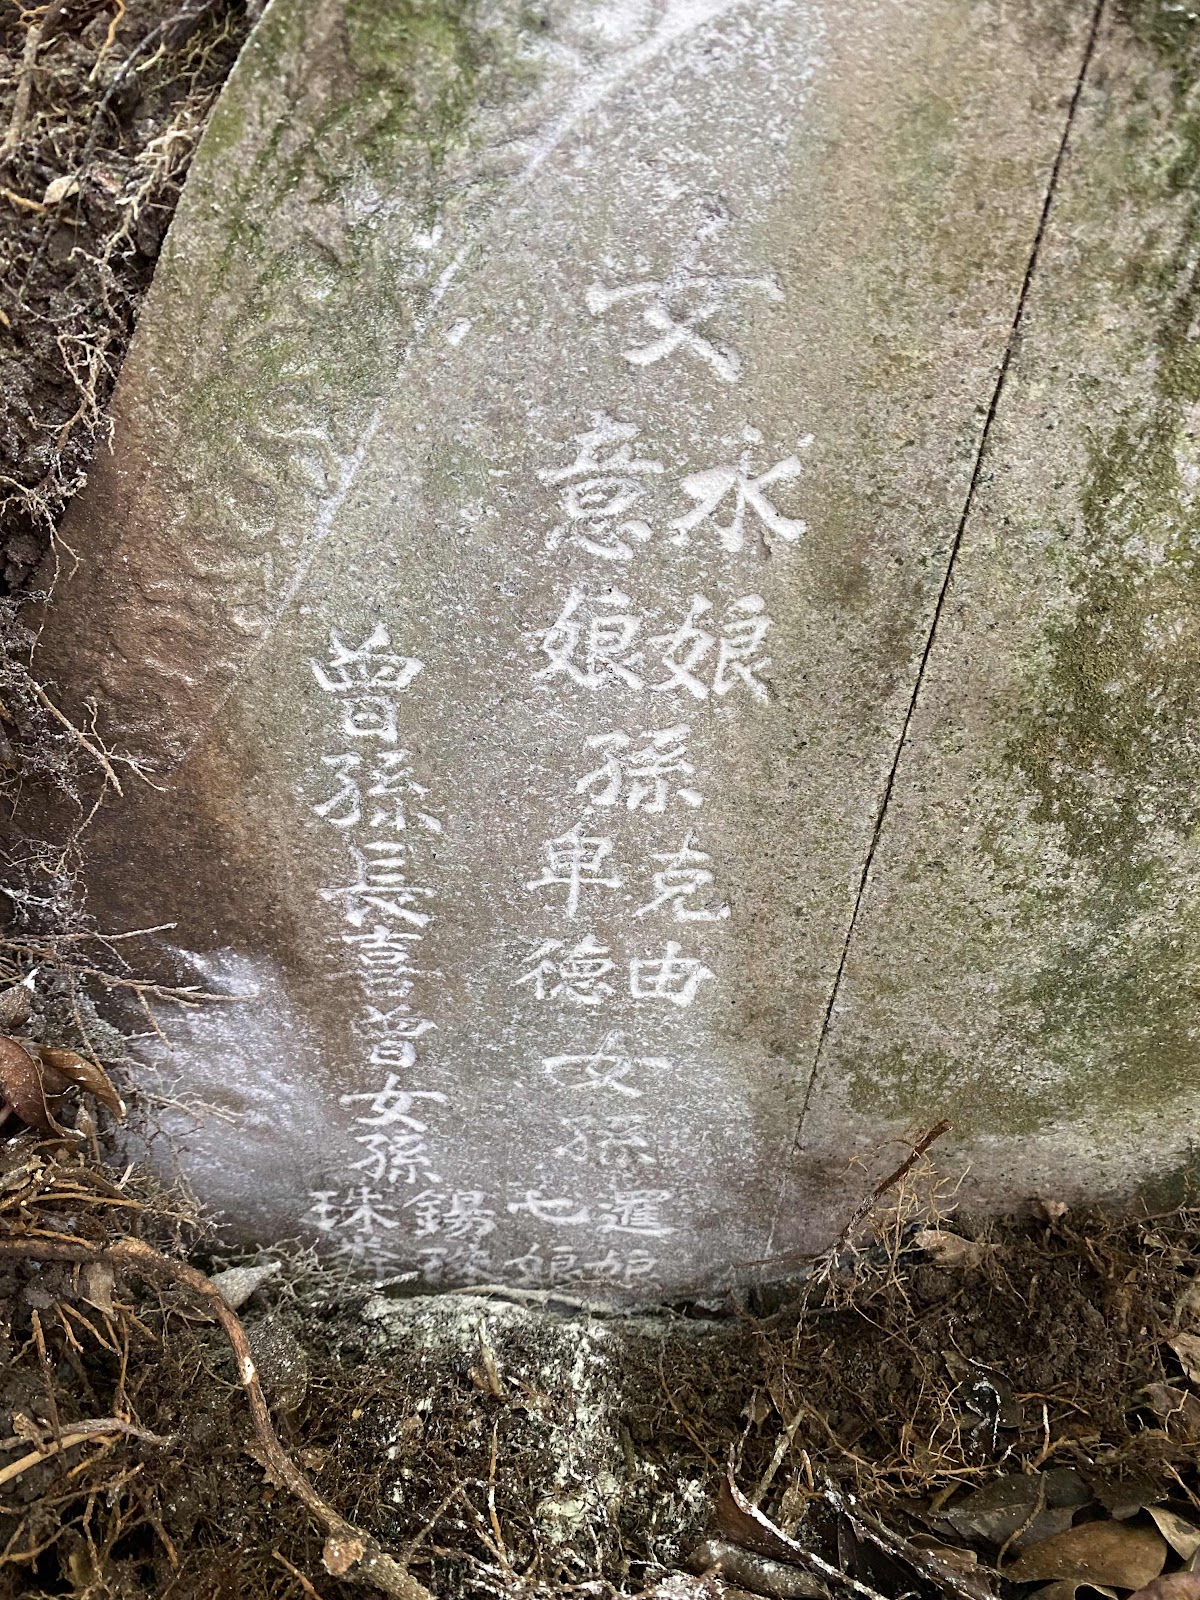 女 永娘 意娘 孫 克由 卑德 女孫 暹娘 七娘
曾孫長喜曾女孫 錫 珠